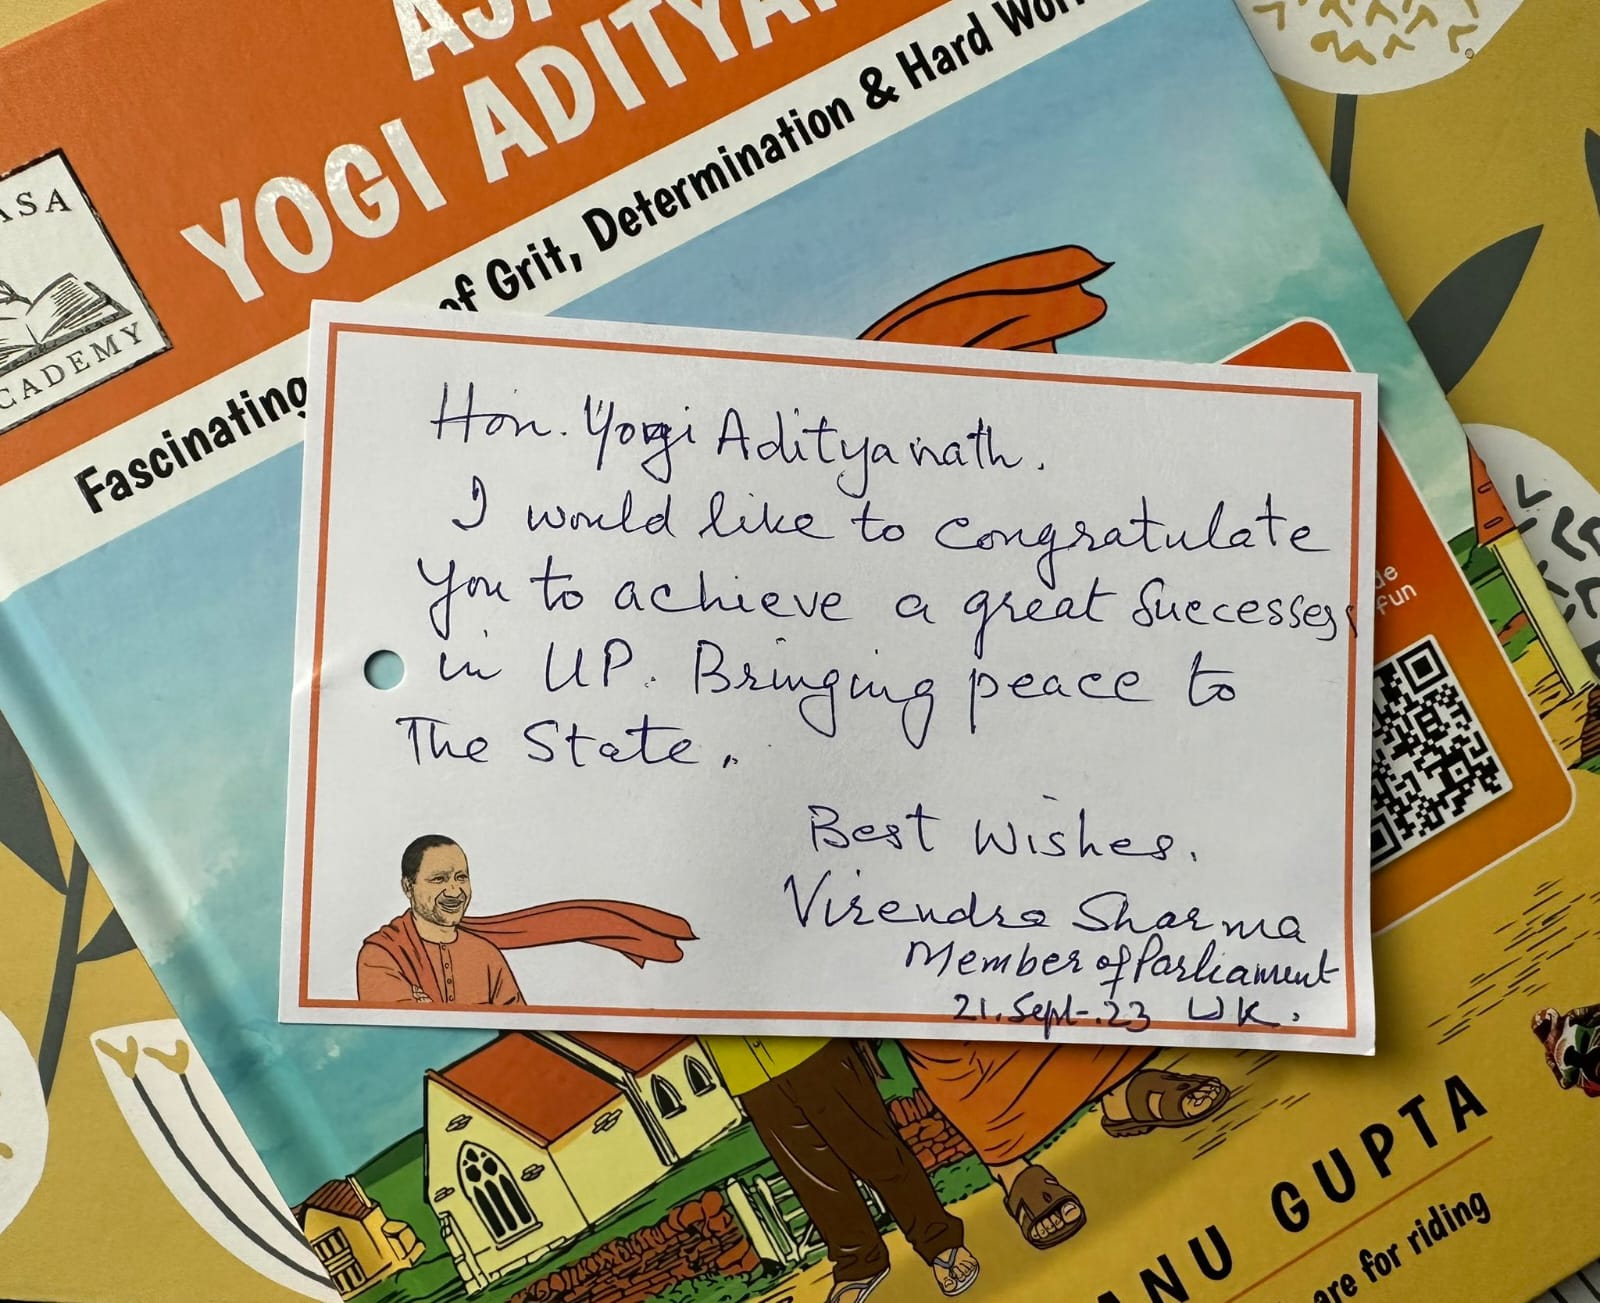 YOGI ADITYA
Fascinating of Grit, Determination & Hard Wor
ASA
CADEMY
Hon. Yogi Adityanath.
I would like to congratulate
you to achieve a great Successes
in UP. Bringing peace to
The State.
Best Wishes.
Virendra Sharma
Member of Parliament
21. Sept-. 23 UK.
de
fun
ANU GUPTA
are for riding